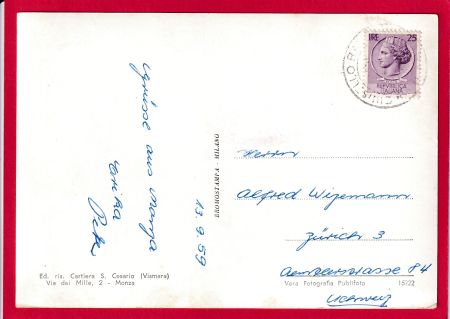 Grüsse aus Monza
Erika
13.9.59
Ed. ris. Cartiera S. Cesario (Vismara)
Via dei Mille, 2 - Monza
BROMOSTAMPA - MILANO
LIRE 25
REPVBBLICA
ITALIANA
Herrn
Alfred
Zürich 3
84
Schweiz
Vera Fotografia Publifoto
15222